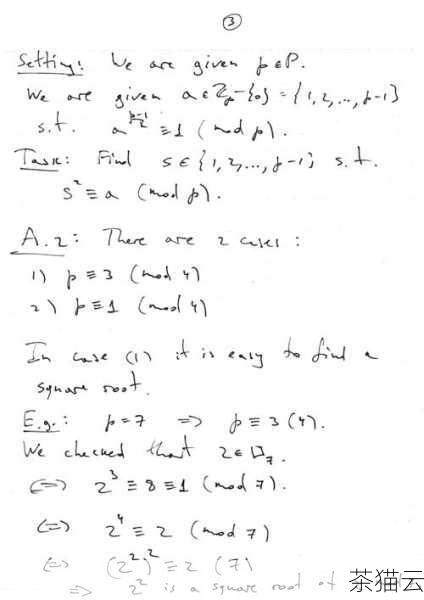 ③
Setting: We are given p ∈ P.
We are given a ∈ ℤₚ - {0} = {1, 2, ..., p-1}
s.t. a^((p-1)/2) ≡ 1 (mod p).
Task: Find s ∈ {1, 2, ..., p-1} s.t.
s² ≡ a (mod p).
A.2: There are 2 cases:
1) p ≡ 3 (mod 4)
2) p ≡ 1 (mod 4)
In case (1) it is easy to find a
square root.
E.g.: p = 7 => p ≡ 3 (4).
We checked that 2 ∈ □₇.
<=> 2³ ≡ 8 ≡ 1 (mod 7).
<=> 2⁴ ≡ 2 (mod 7)
<=> (2²)² ≡ 2 (7)
=> 2² is a square root of
茶猫云